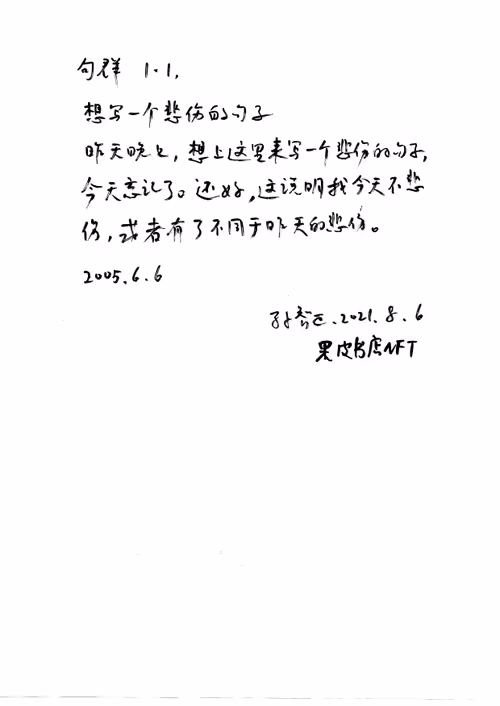 句群 1.1,
想写一个悲伤的句子
昨天晚上，想上这里来写一个悲伤的句子，
今天忘记了。还好，这说明我今天不悲
伤，或者有了不同于昨天的悲伤。
2005.6.6
孙智正.2021.8.6
果皮书店NFT